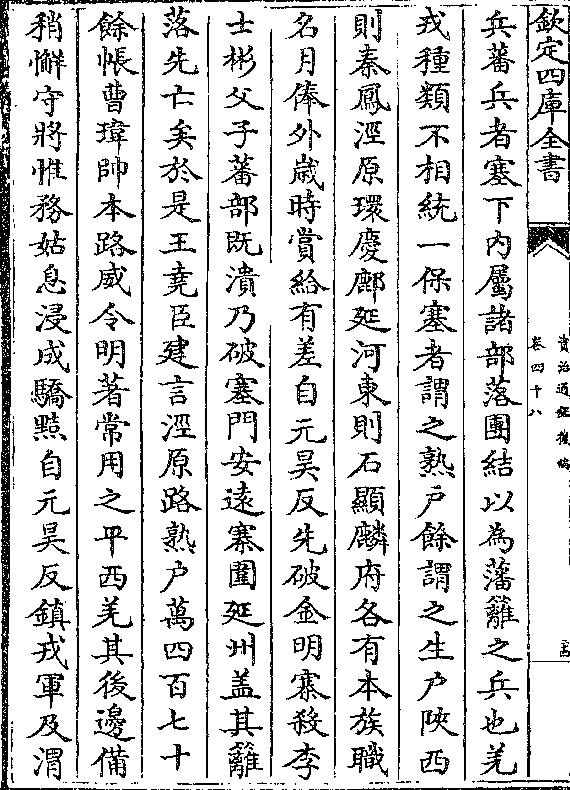 欽定四庫全書
資治通鑑後編
卷四十八
兵蕃兵者塞下内屬諸部落團結以為藩籬之兵也羌
戎種類不相統一保塞者謂之熟户餘謂之生户陜西
則秦鳳涇原環慶鄜延河東則石顯麟府各有本族職
名月俸外歳時賞給有差自元昊反先破金明寨殺李
士彬父子蕃部既潰乃破塞門安遠寨圍延州盖其籬
落先亡矣於是王堯臣建言涇原路熟户萬四百七十
餘帳曹瑋帥本路威令明著常用之平西羌其後邊備
稍懈守將惟務姑息浸成驕黠自元昊反鎮戎軍及渭